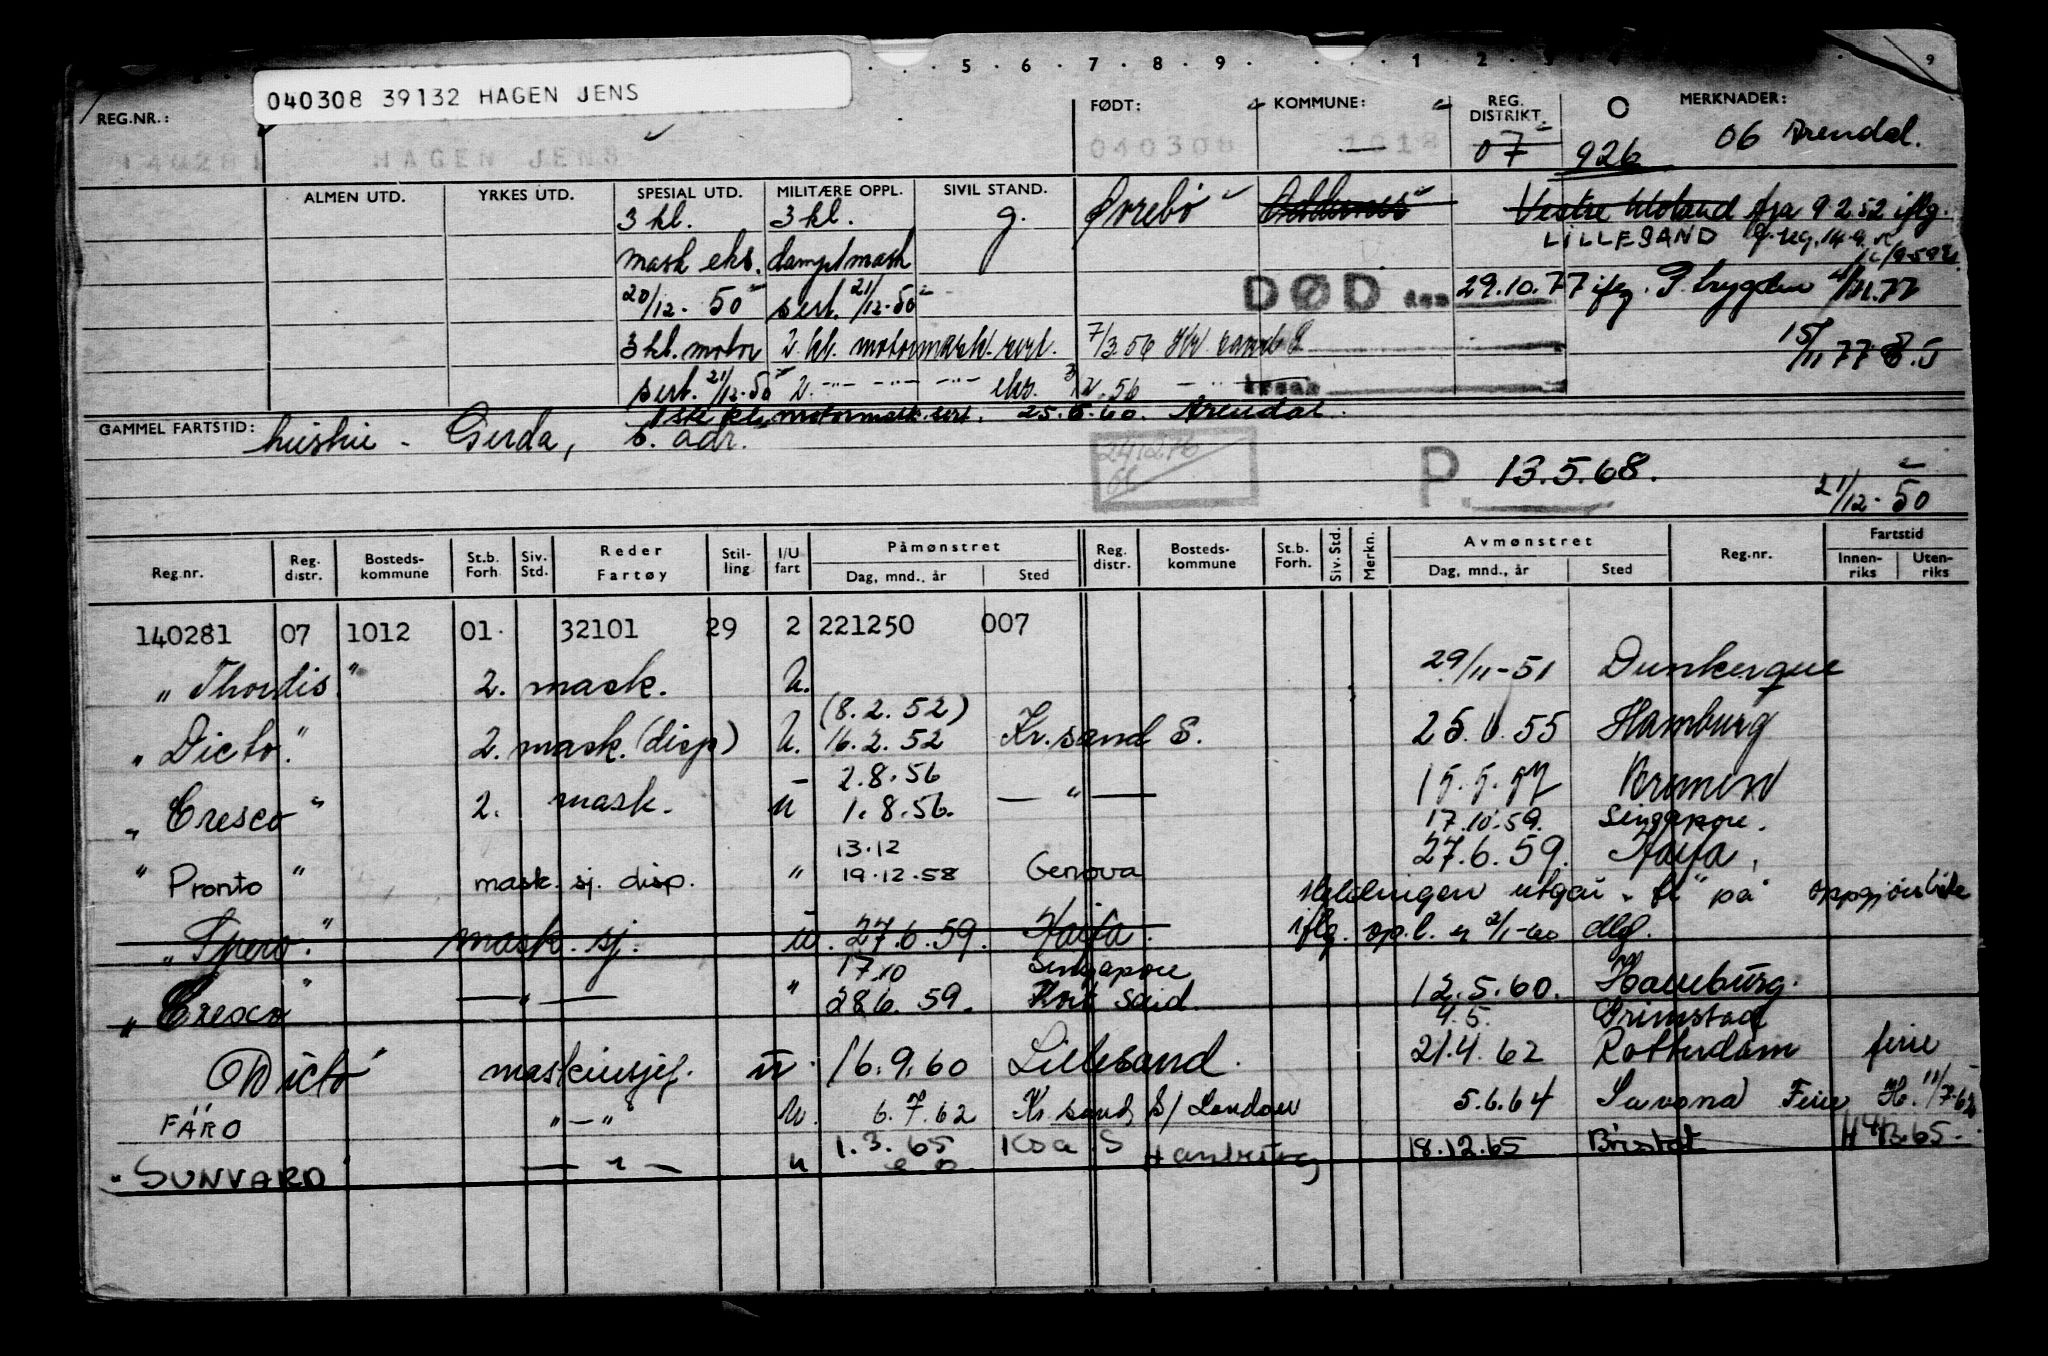 5 . 6 . 7 . 8 . 9 . 1 . 2 . 3 . 9
040308 39132 HAGEN JENS
REG.NR.: FØDT: KOMMUNE: REG. DISTRIKT. O MERKNADER:
140281 HAGEN JENS 040308 1018 07 926 06 Arendal.
ALMEN UTD. YRKES UTD. SPESIAL UTD. MILITÆRE OPPL. SIVIL STAND.
3 kl. 3 kl. g. Øvrebø Oddernes Vestre Moland fra 9 2 52 iflg.
LILLESAND
mask eks. dampmask
20/12. 50 sert. 21/12-50 DØD den 29.10.77 ifg. P. trygden
3 kl. motor 2. kl. motormask. sert. 7/3.56 15/11 77
sert. 21/12.50 2. -"- -"- -"- eks. .56
1ste kl. motormask. sert. 25.5.60. Arendal.
GAMMEL FARTSTID: hustru - Gerda, s. adr.
P. 13.5.68.
21/12-50
Reg.nr. Reg. distr. Bosteds-kommune St.b. Forh. Siv. Std. Reder Fartøy Stil-ling I/U fart Påmønstret Dag, mnd., år Sted Reg. distr. Bosteds-kommune St.b. Forh. Siv. Std. Merkn. Avmønstret Dag, mnd., år Sted Reg.nr. Fartstid Innen-riks Uten-riks
140281 07 1012 01 32101 29 2 221250 007
"Thordis" 2. mask. U. 29/11-51 Dunkerque
(8.2.52)
"Dicto" 2. mask. (disp) U. 16.2.52 Kr.sand S. 25. .55 Hamburg
2.8.56
"Cresco" 2. mask. u 1.8.56. — " — 15.5.57 Bremen
13.12 17.10.59. Singapore.
"Pronto" mask. sj. disp. " 19.12.58 Genova 27.6.59. Haifa.
Meldingen utgår på
"Spero" mask. sj. u. 27.6.59. Haifa. iflg. op.l. 2/1-60 dlg.
17.10 Singapore
"Cresco" — " — " 28.6.59. Port Said. 12.5.60. Hamburg.
4.5. Grimstad
Dicto maskinsjef. u. 16.9.60 Lillesand. 21.4.62 Rotterdam ferie
FÄRO "—" U. 6.7.62 Kr.sand S/Landau 5.6.64 Savona Ferie
"SUNVARD" — " — u 1.3.65 Ksa S Hamburg 18.12.65 Bristol